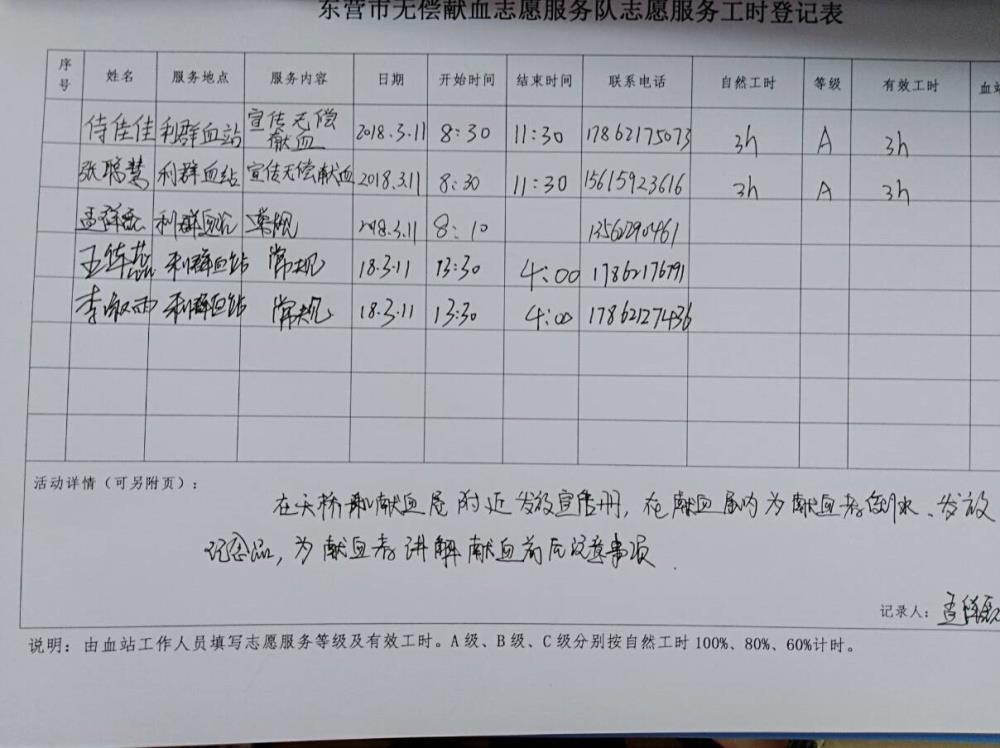 东营市无偿献血志愿服务队志愿服务工时登记表
序号 姓名 服务地点 服务内容 日期 开始时间 结束时间 联系电话 自然工时 等级 有效工时 血站
侍佳佳 利群血站 宣传无偿献血 2018.3.11 8:30 11:30 17862175073 3h A 3h
张聪慧 利群血站 宣传无偿献血 2018.3.11 8:30 11:30 15615923616 3h A 3h
利群血站 常规 2018.3.11 8:10 13562290461
王 利群血站 常规 18.3.11 13:30 4:00 17862176791
李淑雨 利群血站 常规 18.3.11 13:30 4:00 17862127436
活动详情（可另附页）：
在天桥和献血屋附近发放宣传册，在献血屋内为献血者倒水、发放
纪念品，为献血者讲解献血前后注意事项.
记录人：
说明：由血站工作人员填写志愿服务等级及有效工时。A级、B级、C级分别按自然工时100%、80%、60%计时。